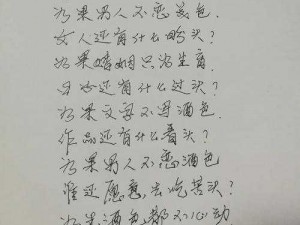 如果男人不恋美色
女人还有什么盼头？
如果婚姻只为生育
日子还有什么过头？
如果文字不写酒色
作品还有什么看头？
如果男人不恋酒色
谁还愿意去吃苦头？
如果酒色都不心动